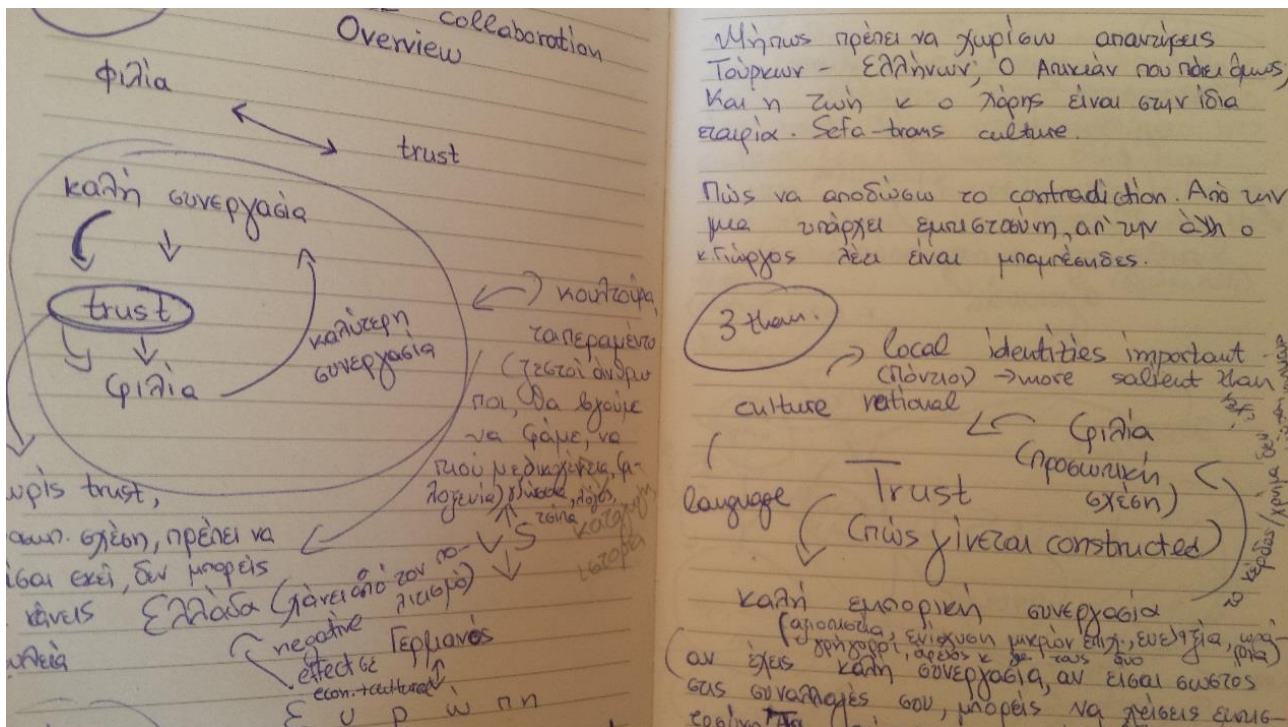 collaboration
Overview
φιλία
trust
καλή συνεργασία
trust
φιλία
καλύτερη
συνεργασία
κουλτούρα,
ταπεραμέντο
(ζεστοί άνθρω
ποι, θα βγούμε
να φάμε, να
πιούμε
λογενία)
χωρίς trust,
σχέση, πρέπει να
είσαι εκεί, δεν μπορείς
κάνεις
δουλειά
Ελλάδα (χάνει από τον πο-
λιτισμό)
negative
effect σε
econ.+cultural
Γερμανός
Ευρώπη
Μήπως πρέπει να χωρίσω απαντήσεις
Τούρκων - Ελλήνων; Ο που πάει όμως;
Και η Ζωή κ ο Χάρης είναι στην ίδια
εταιρία. Sefa-trans culture.
Πώς να αποδώσω το contradiction. Από την
μια υπάρχει εμπιστοσύνη, απ' την άλλη ο
κ. Γιώργος λέει είναι μπαμπέσηδες.
3 them.
local identities important
(Πόντιοι) → more salient than
culture national
language
φιλία
(προσωπική
σχέση)
Trust
(πώς γίνεται constructed)
κέρδος/χρήμα δεν
καλή εμπορική συνεργασία
(αξιοπιστία, ενίσχυση μικρών επιχ., ευελιξία,
γρήγοροι, τους δυο
αν έχεις καλή συνεργασία, αν είσαι σωστος
στις συναλλαγές σου, μπορείς να χτίσεις εμπισ